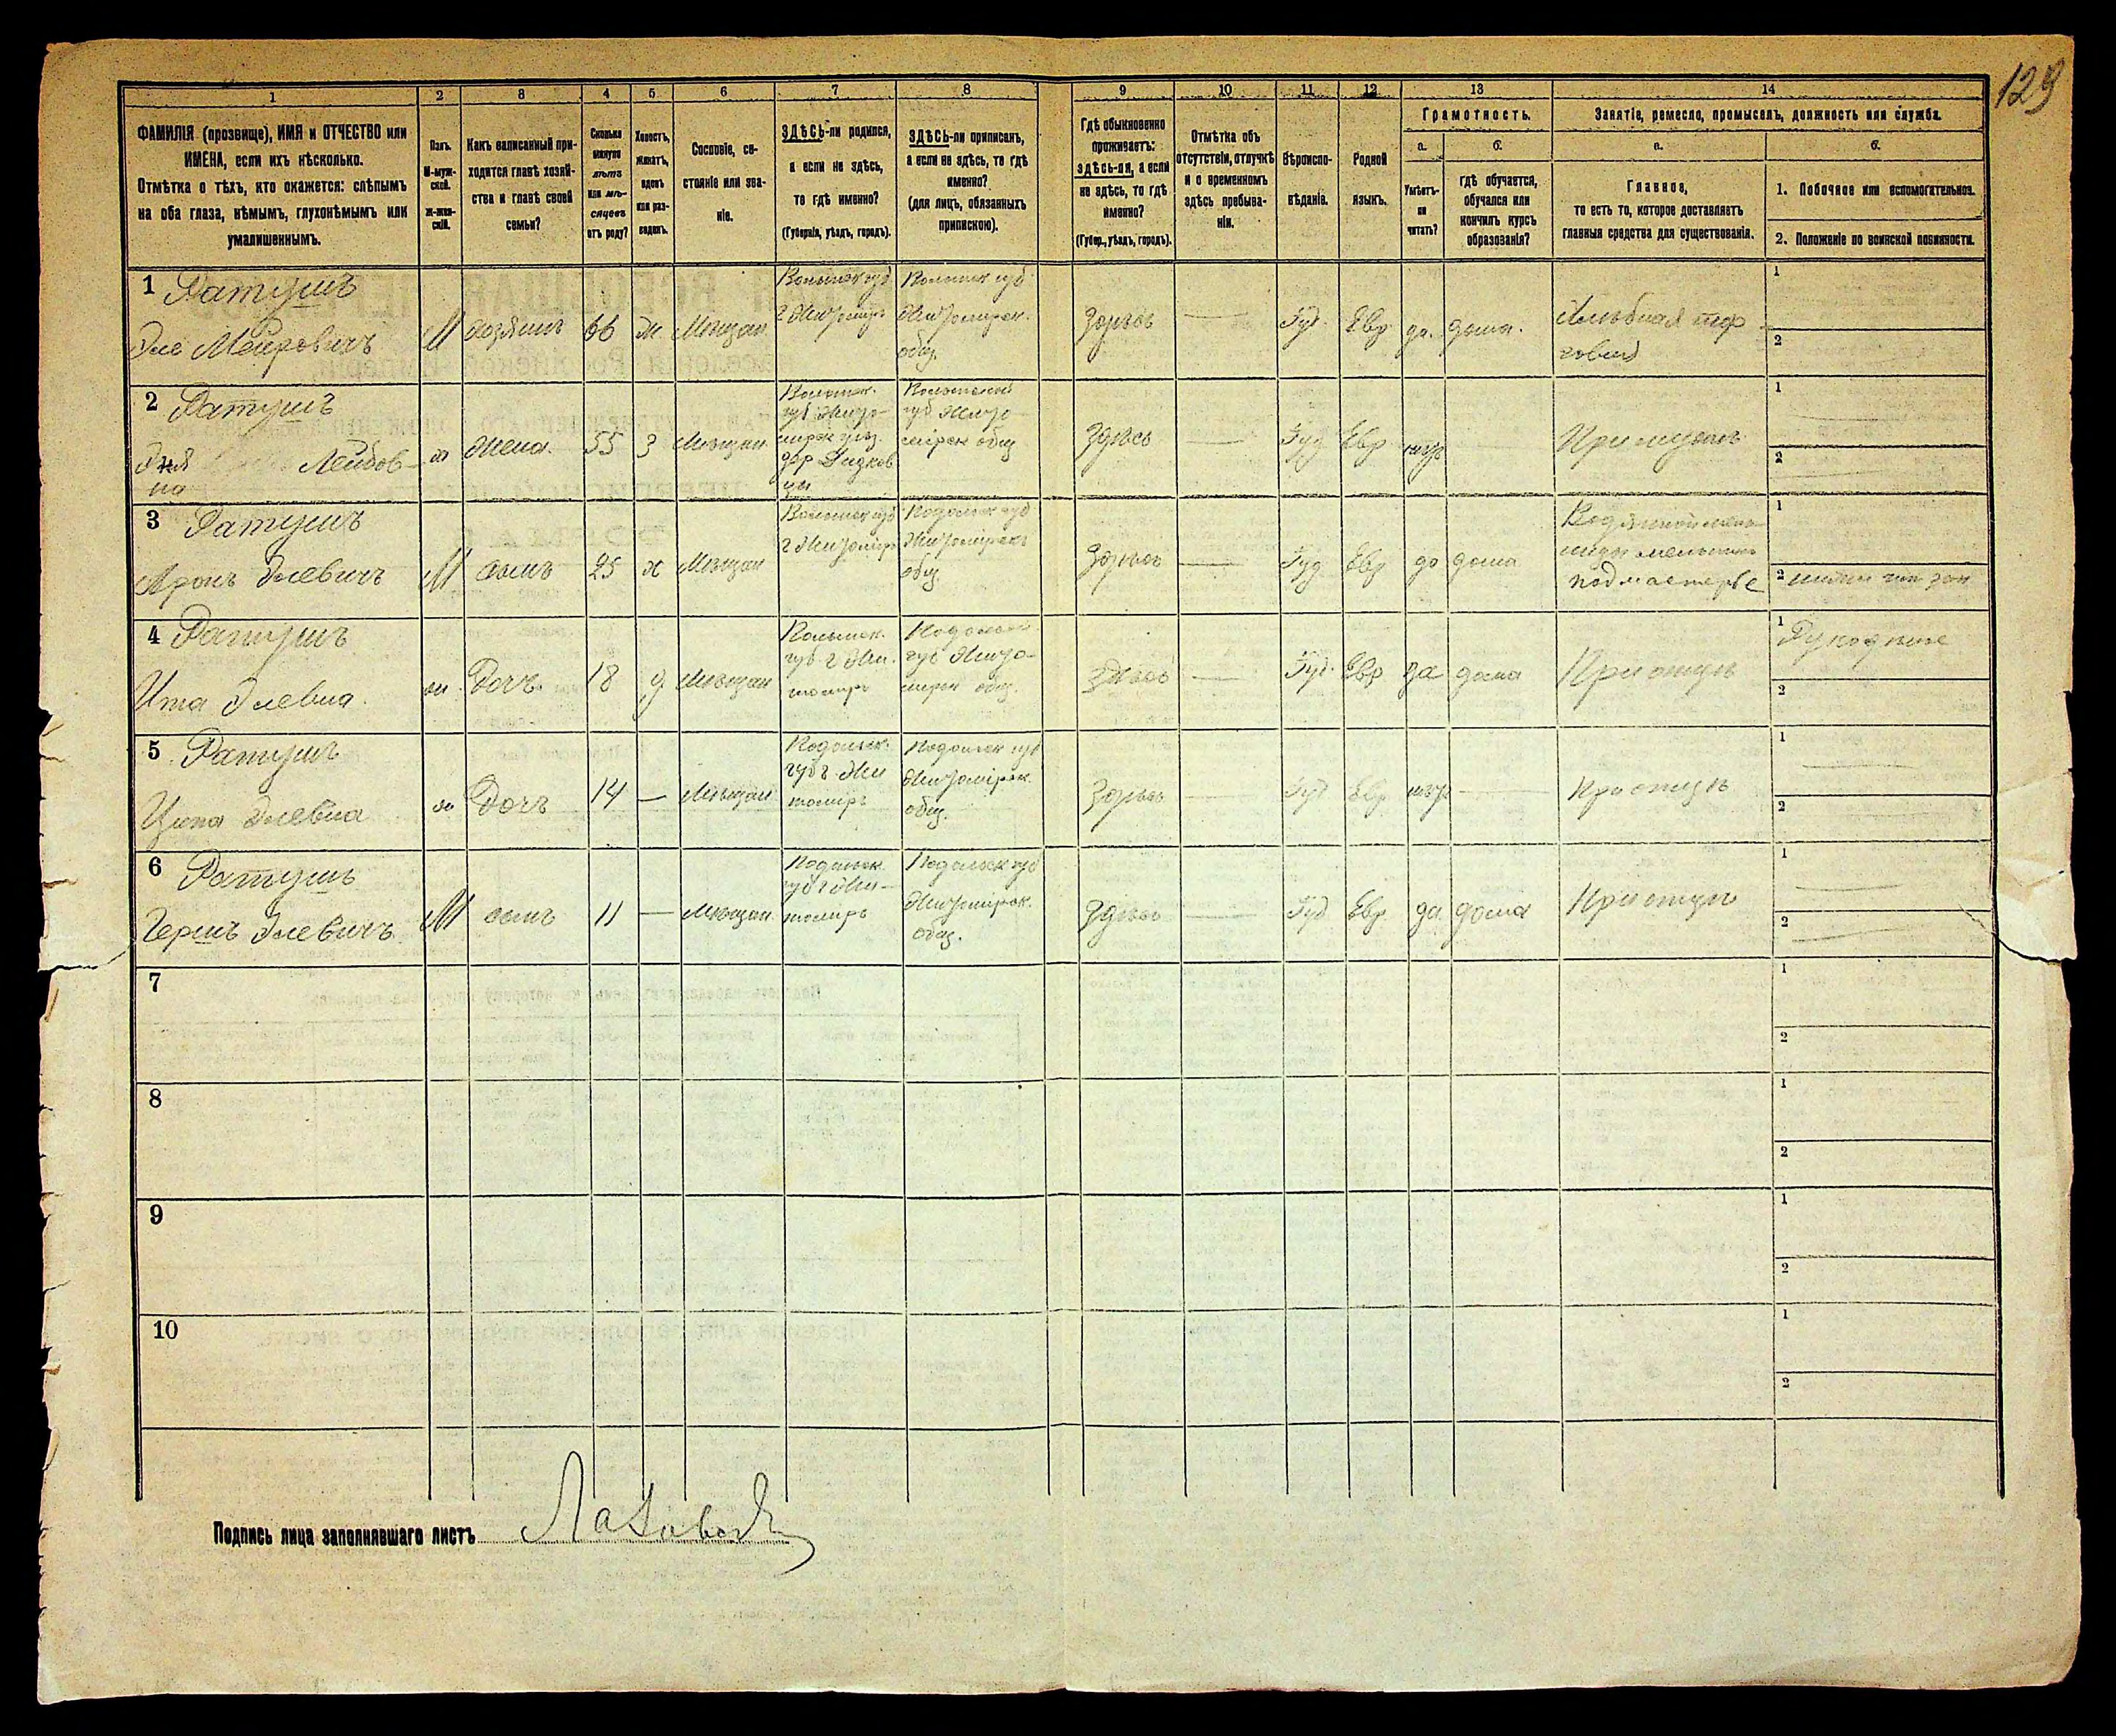 129
1 2 3 4 5 6 7 8 9 10 11 12 13 14
ФАМИЛІЯ (прозвище), ИМЯ и ОТЧЕСТВО или
ИМЕНА, если ихъ нѣсколько.
Отмѣтка о тѣхъ, кто окажется: слѣпымъ
на оба глаза, нѣмымъ, глухонѣмымъ или
умалишеннымъ.
Полъ.
М-муж-
ской.
Ж-жен-
скій.
Какъ записанный при-
ходится главѣ хозяй-
ства и главѣ своей
семьи?
Сколько
минуло
лѣтъ
или мѣ-
сяцевъ
отъ роду?
Холостъ,
женатъ,
вдовъ
или раз-
веденъ.
Сословіе, со-
стояніе или зва-
ніе.
ЗДѢСЬ-ли родился,
а если не здѣсь,
то гдѣ именно?
(Губернія, уѣздъ, городъ).
ЗДѢСЬ-ли приписанъ,
а если не здѣсь, то гдѣ
именно?
(для лицъ, обязанныхъ
припискою).
Гдѣ обыкновенно
проживаетъ:
здѣсь-ли, а если
не здѣсь, то гдѣ
именно?
(Губер., уѣздъ, городъ).
Отмѣтка объ
отсутствіи, отлучкѣ
и о временномъ
здѣсь пребыва-
ніи.
Вѣроиспо-
вѣданіе.
Родной
языкъ.
Грамотность.
а.
Умѣетъ-
ли
читать?
б.
гдѣ обучается,
обучался или
кончилъ курсъ
образованія?
Занятіе, ремесло, промыселъ, должность или служба.
а.
Главное,
то есть то, которое доставляетъ
главныя средства для существованія.
б.
1. Побочное или вспомогательное.
2. Положеніе по воинской повинности.
1 Ратушъ
Эле Меировичъ
М хозяинъ 66 ж. Мѣщан.
Волынск губ
г Житоміръ
Волынск губ
Житомірск.
общ.
Здѣсь — Іуд. Евр да. дома.
Хлѣбная тор
говля
1
2
2 Ратушъ
Лейбов-
на
ж Жена. 55 з Мѣщан.
Волынск.
губ Жито-
мірск уѣз.
Волынской
губ Жито
мірск общ
Здѣсь — Іуд Евр
1
2
3 Ратушъ
Аронъ Элевичъ
М сынъ 25 х Мѣщан
Волынск губ
г Житоміръ
Подольск губ
Житомірскъ
общ.
Здѣсь — Іуд Евр да дома
подмастерье
1
2
4 Ратушъ
Ита Элевна.
ж. Дочь. 18 д Мѣщан
Волынск.
губ г Жи-
томіръ
Подольск
губ Жито-
мірск общ.
Здѣсь — Іуд. Евр да дома
При отцѣ
1 Рукодѣлье
2
5 Ратушъ
Ципа Элевна
ж Дочь 14 — Мѣщан
Подольск.
губ г Жи
томіръ
Подольск губ
Житомірск.
общ.
Здѣсь — Іуд Евр —
При отцѣ
1
2
6 Ратушъ
Гершъ Элевичъ.
М сынъ 11 — Мѣщан
Подольск
губ г Жи-
томіръ
Подольск губ
Житомірск.
общ.
Здѣсь — Іуд Евр. да. дома
При отцѣ
1
2
7
1
2
8
1
2
9
1
2
10
1
2
Подпись лица заполнявшаго листъ